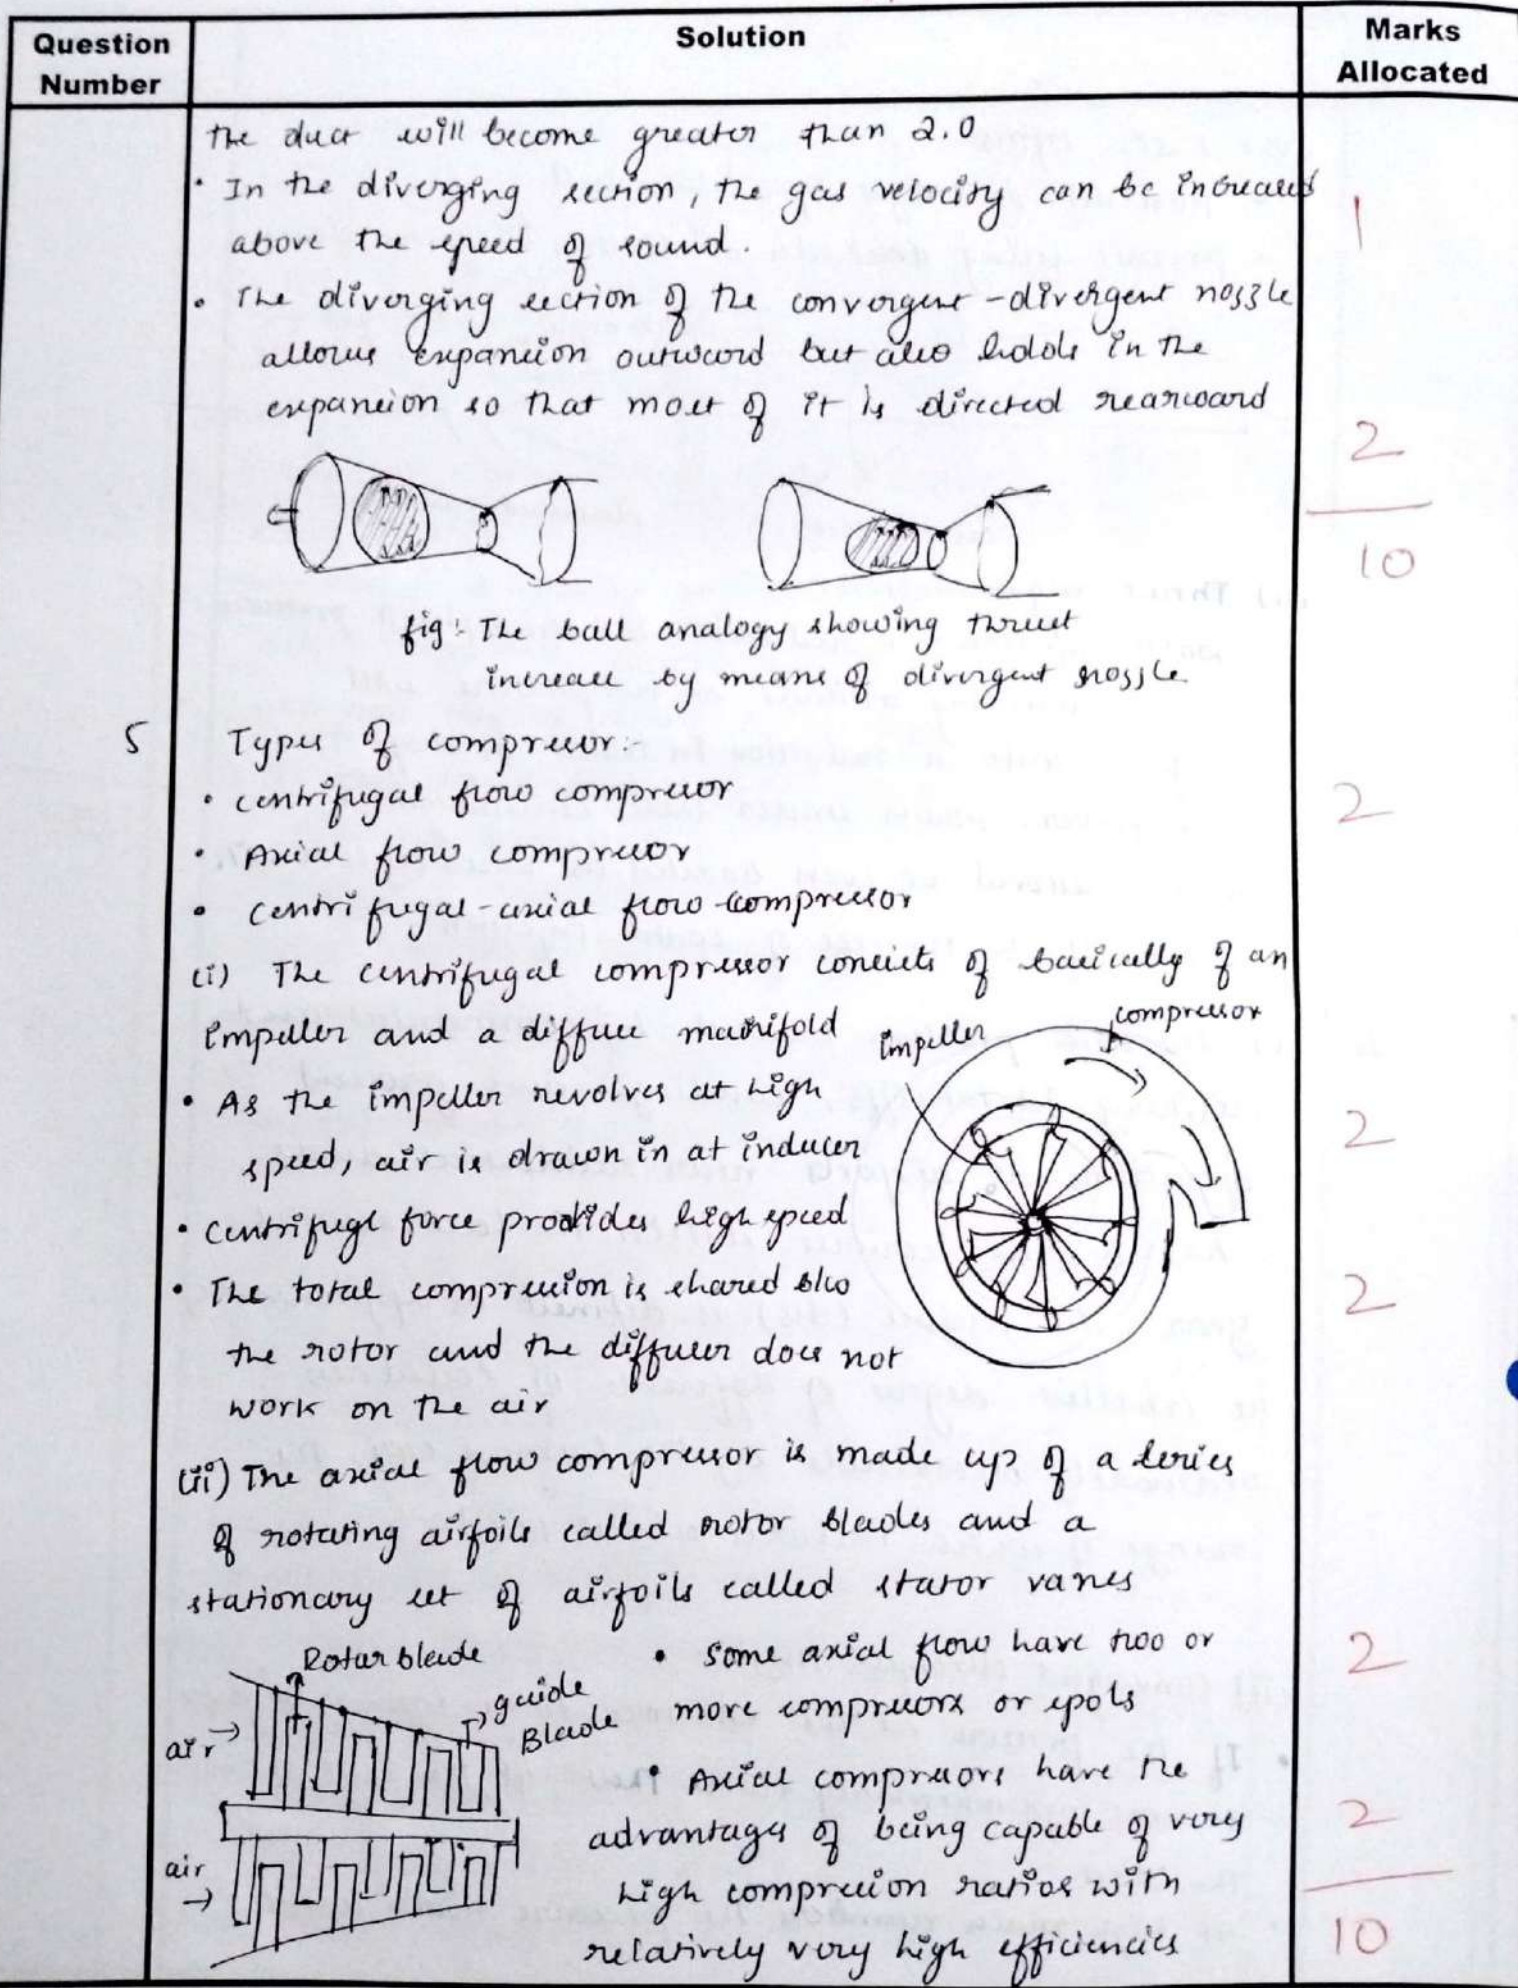 Question Number
Solution
Marks Allocated
the duct will become greater than 2.0
• In the diverging section, the gas velocity can be increased
above the speed of sound.
1
• The diverging section of the convergent-divergent nozzle
allows expansion outward but also holds in the
expansion so that most of it is directed rearward
2
10
fig:- The ball analogy showing thrust
increase by means of divergent nozzle.
5
Types of compressor:-
• centrifugal flow compressor
2
• Axial flow compressor
• centrifugal-axial flow compressor
(i) The centrifugal compressor consists of basically of an
impeller and a diffuse manifold
impeller
compressor
• As the impeller revolves at high
speed, air is drawn in at inducer
2
• centrifugl force prodides high speed
• The total compression is shared
2
the rotor and the diffuser does not
work on the air
(ii) The axial flow compressor is made up of a series
of rotating airfoils called rotor blades and a
stationary set of airfoils called stator vanes
Rotar blade
guide
Blade
air
air
• Some axial flow have two or
2
more compressors or spols
• Axial compressors have the
advantages of being capable of very
2
high compression ratios with
relatively very high efficiencies
10